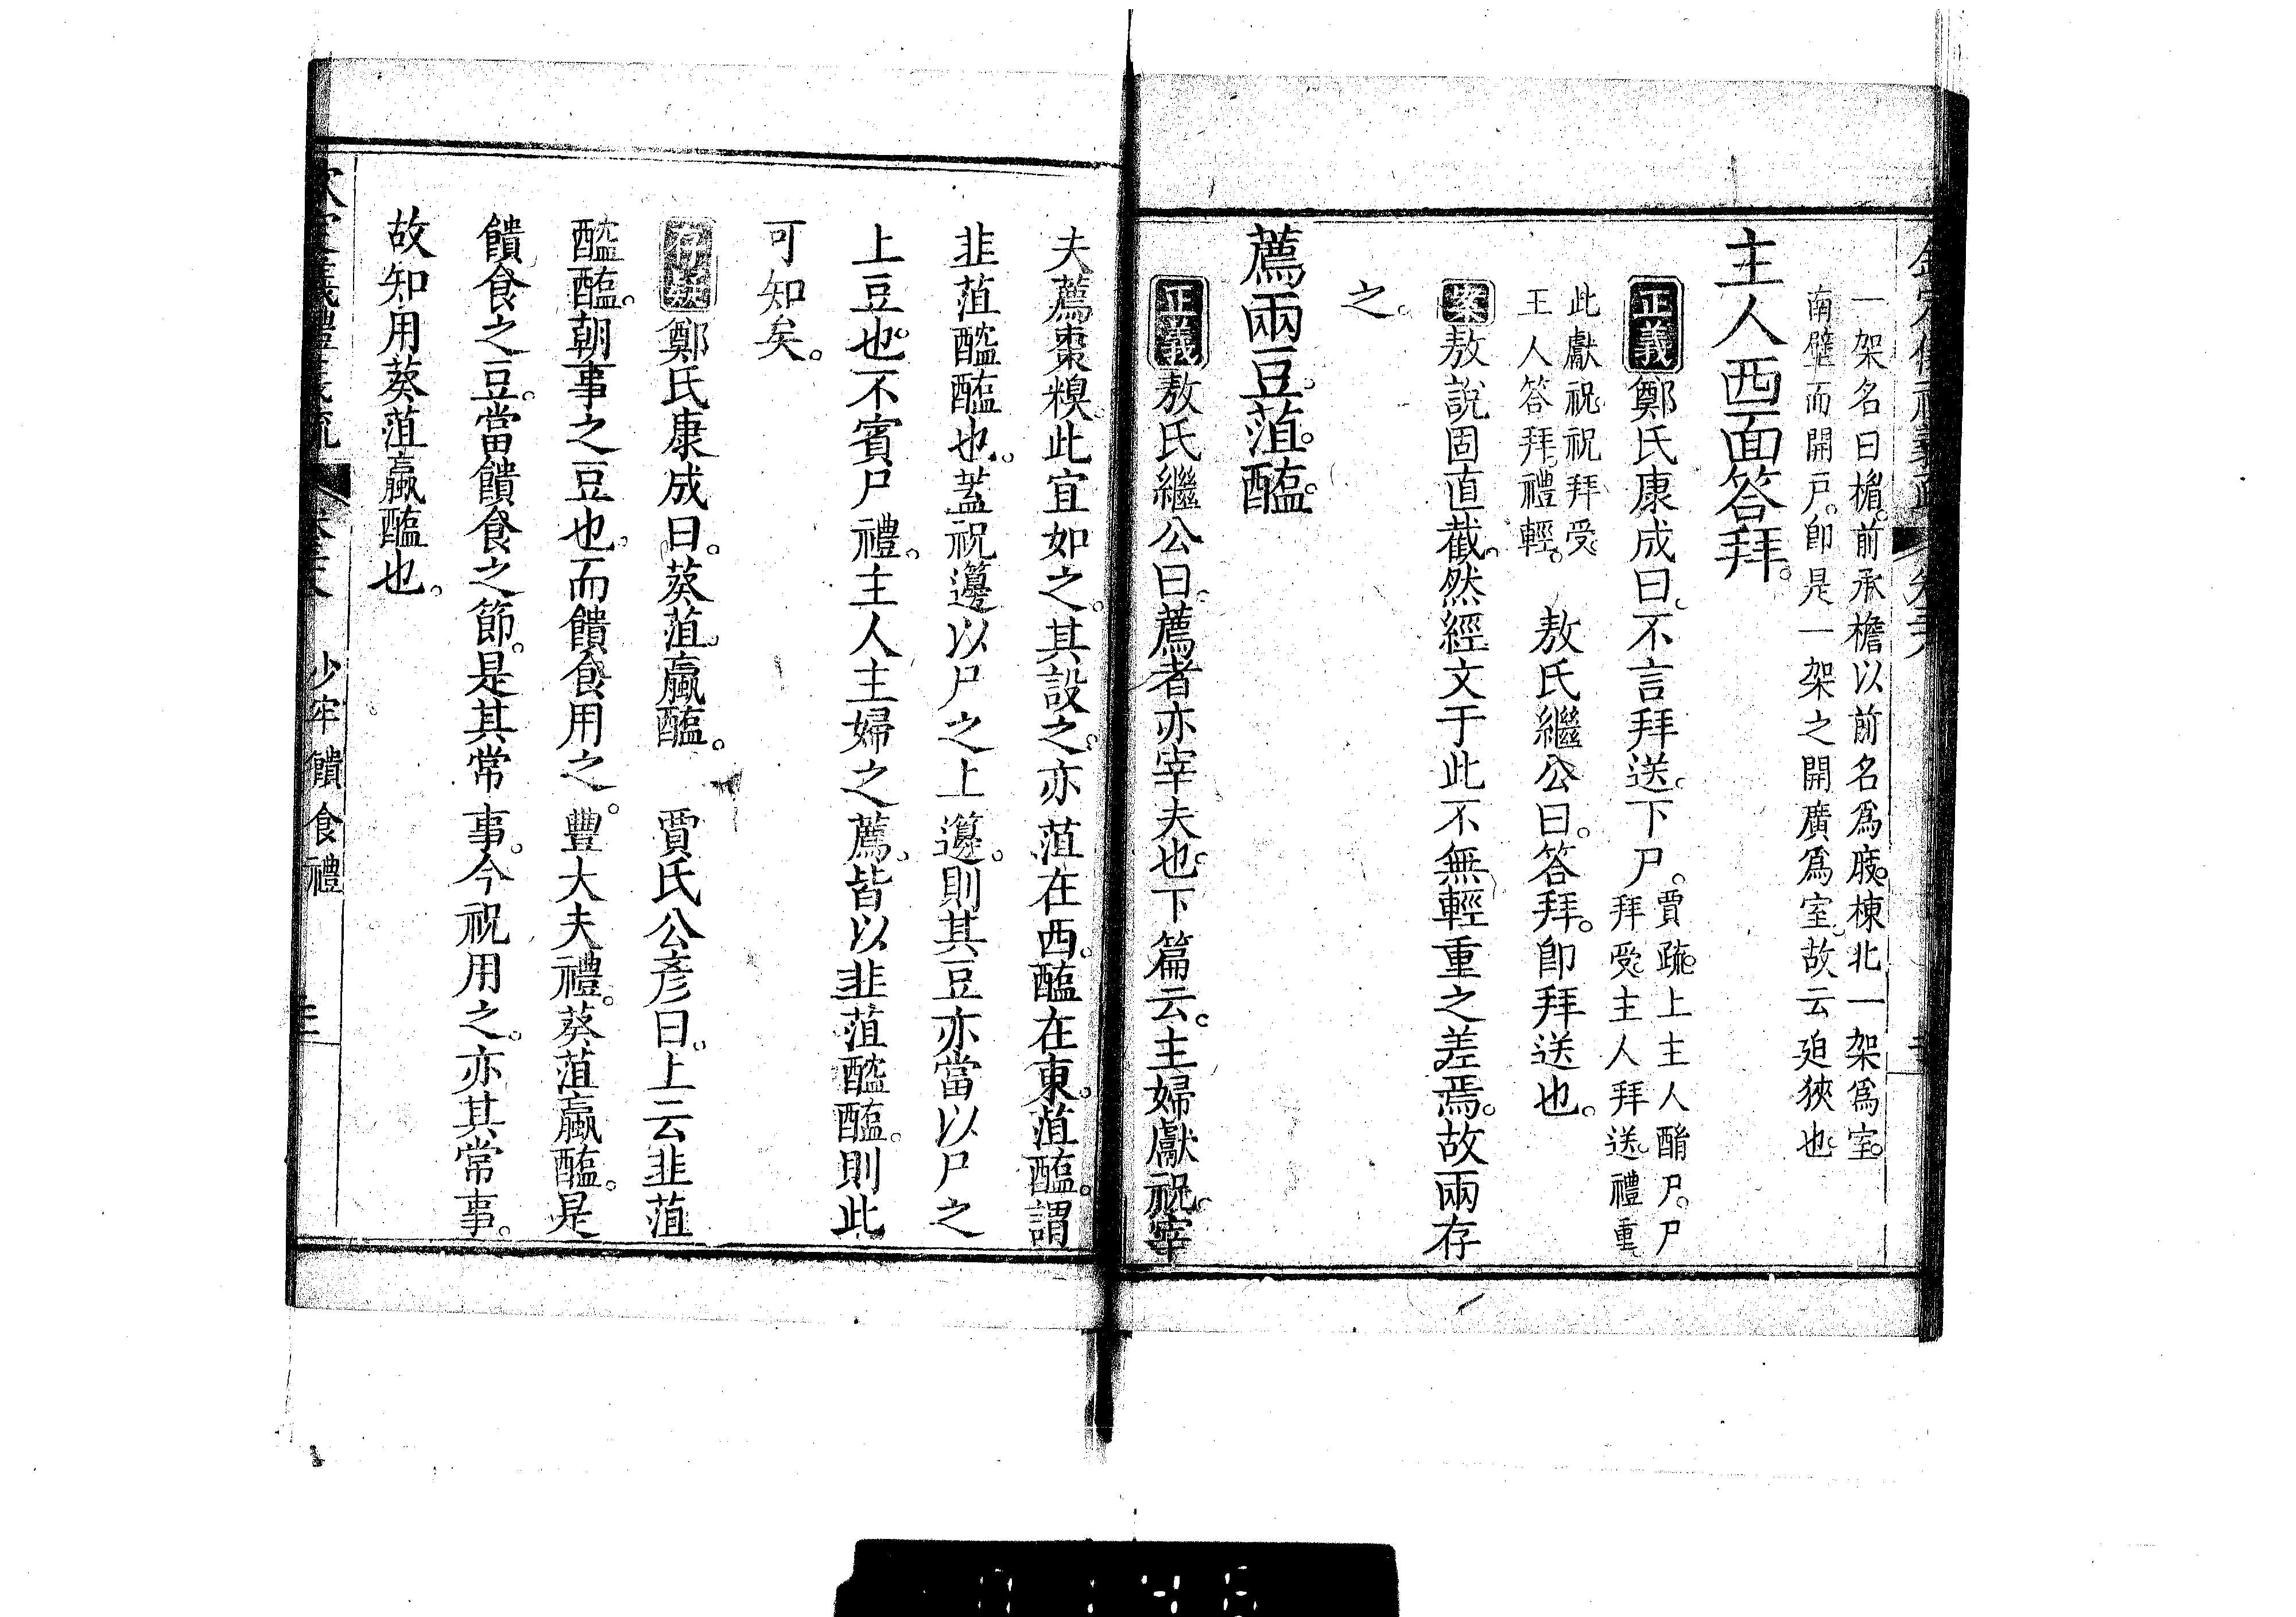 一架名曰楣。前承檐以前名爲庪。棟北一架爲室。
南壁而開戸。卽是一架之開廣爲室。故云廹狹也。
主人西面答拜。
正義鄭氏康成曰。不言拜送。下尸。賈疏。上主人酳尸。尸
拜受。主人拜送。禮重
此獻祝。祝拜受。
主人答拜。禮輕。
敖氏繼公曰。答拜。卽拜送也。
案敖說固直截。然經文于此不無輕重之差焉。故兩存
之。
薦兩豆。菹。醢。
正義敖氏繼公曰。薦者亦宰夫也。下篇云。主婦獻祝。宰
夫薦棗糗。此宜如之。其設之。亦菹在西。醢在東。菹醢。謂
韭菹醓醢也。蓋祝籩以尸之上籩。則其豆亦當以尸之
上豆也。不賓尸禮。主人主婦之薦。皆以韭菹醓醢。則此
可知矣。
存疑鄭氏康成曰。葵菹蠃醢。 賈氏公彥曰。上云韭菹
醓醢。朝事之豆也。而饋食用之。豐大夫禮。葵菹蠃醢。是
饋食之豆。當饋食之節。是其常事。今祝用之。亦其常事。
故知用葵菹蠃醢也。
少牢饋食禮